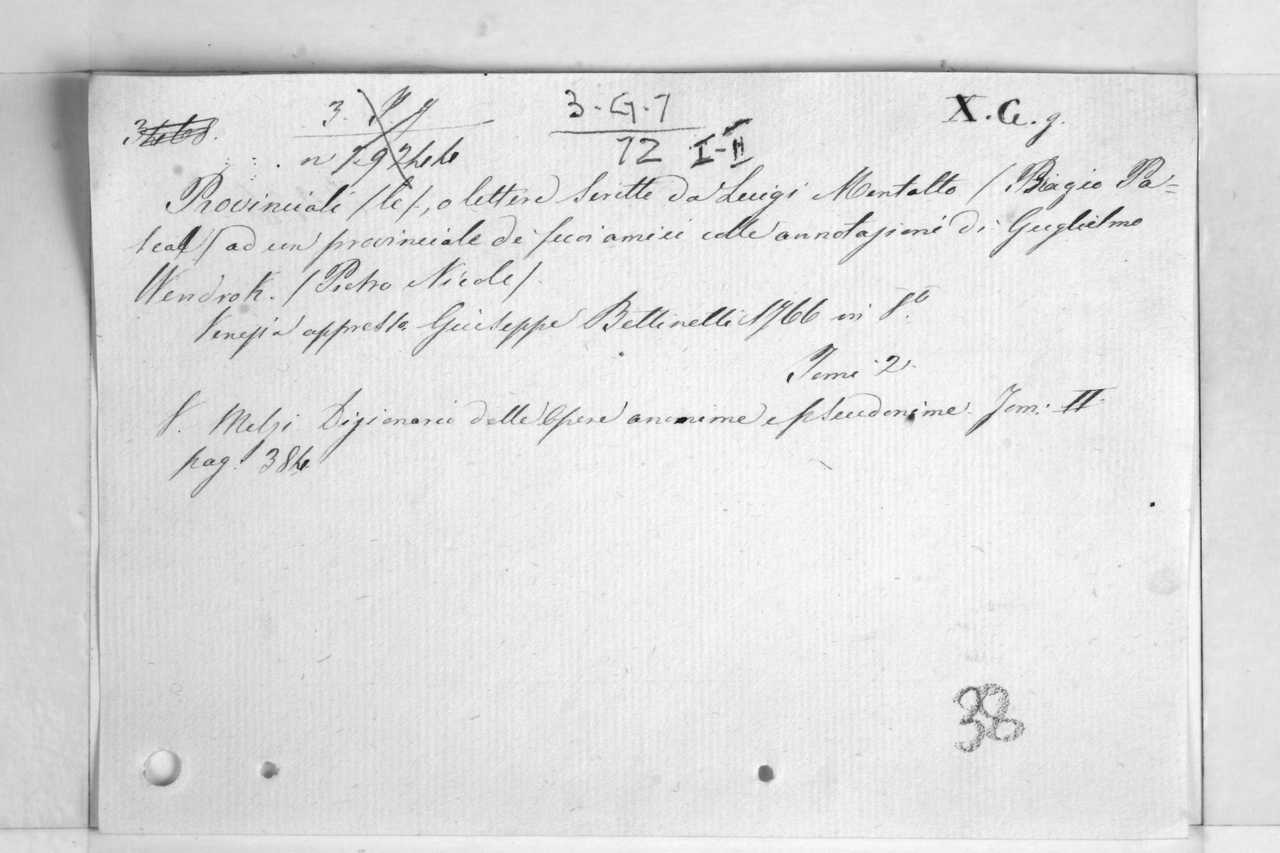 3468.
3.
3-G-7
72 I-II
X.G.g.
Provinciali /le/, o lettere scritte da Luigi Montalto /Biagio Pa=
scal/ ad un provinciale de' suoi amici colle annotazioni di Guglielmo
Wendrok. /Pietro Nicole/.
Venezia appresso Giuseppe Bettinelli 1766 in 8º.
Tomi 2.
V. Melzi Dizionario delle Opere anonime e pseudonime. Tom: II
pag: 384
38